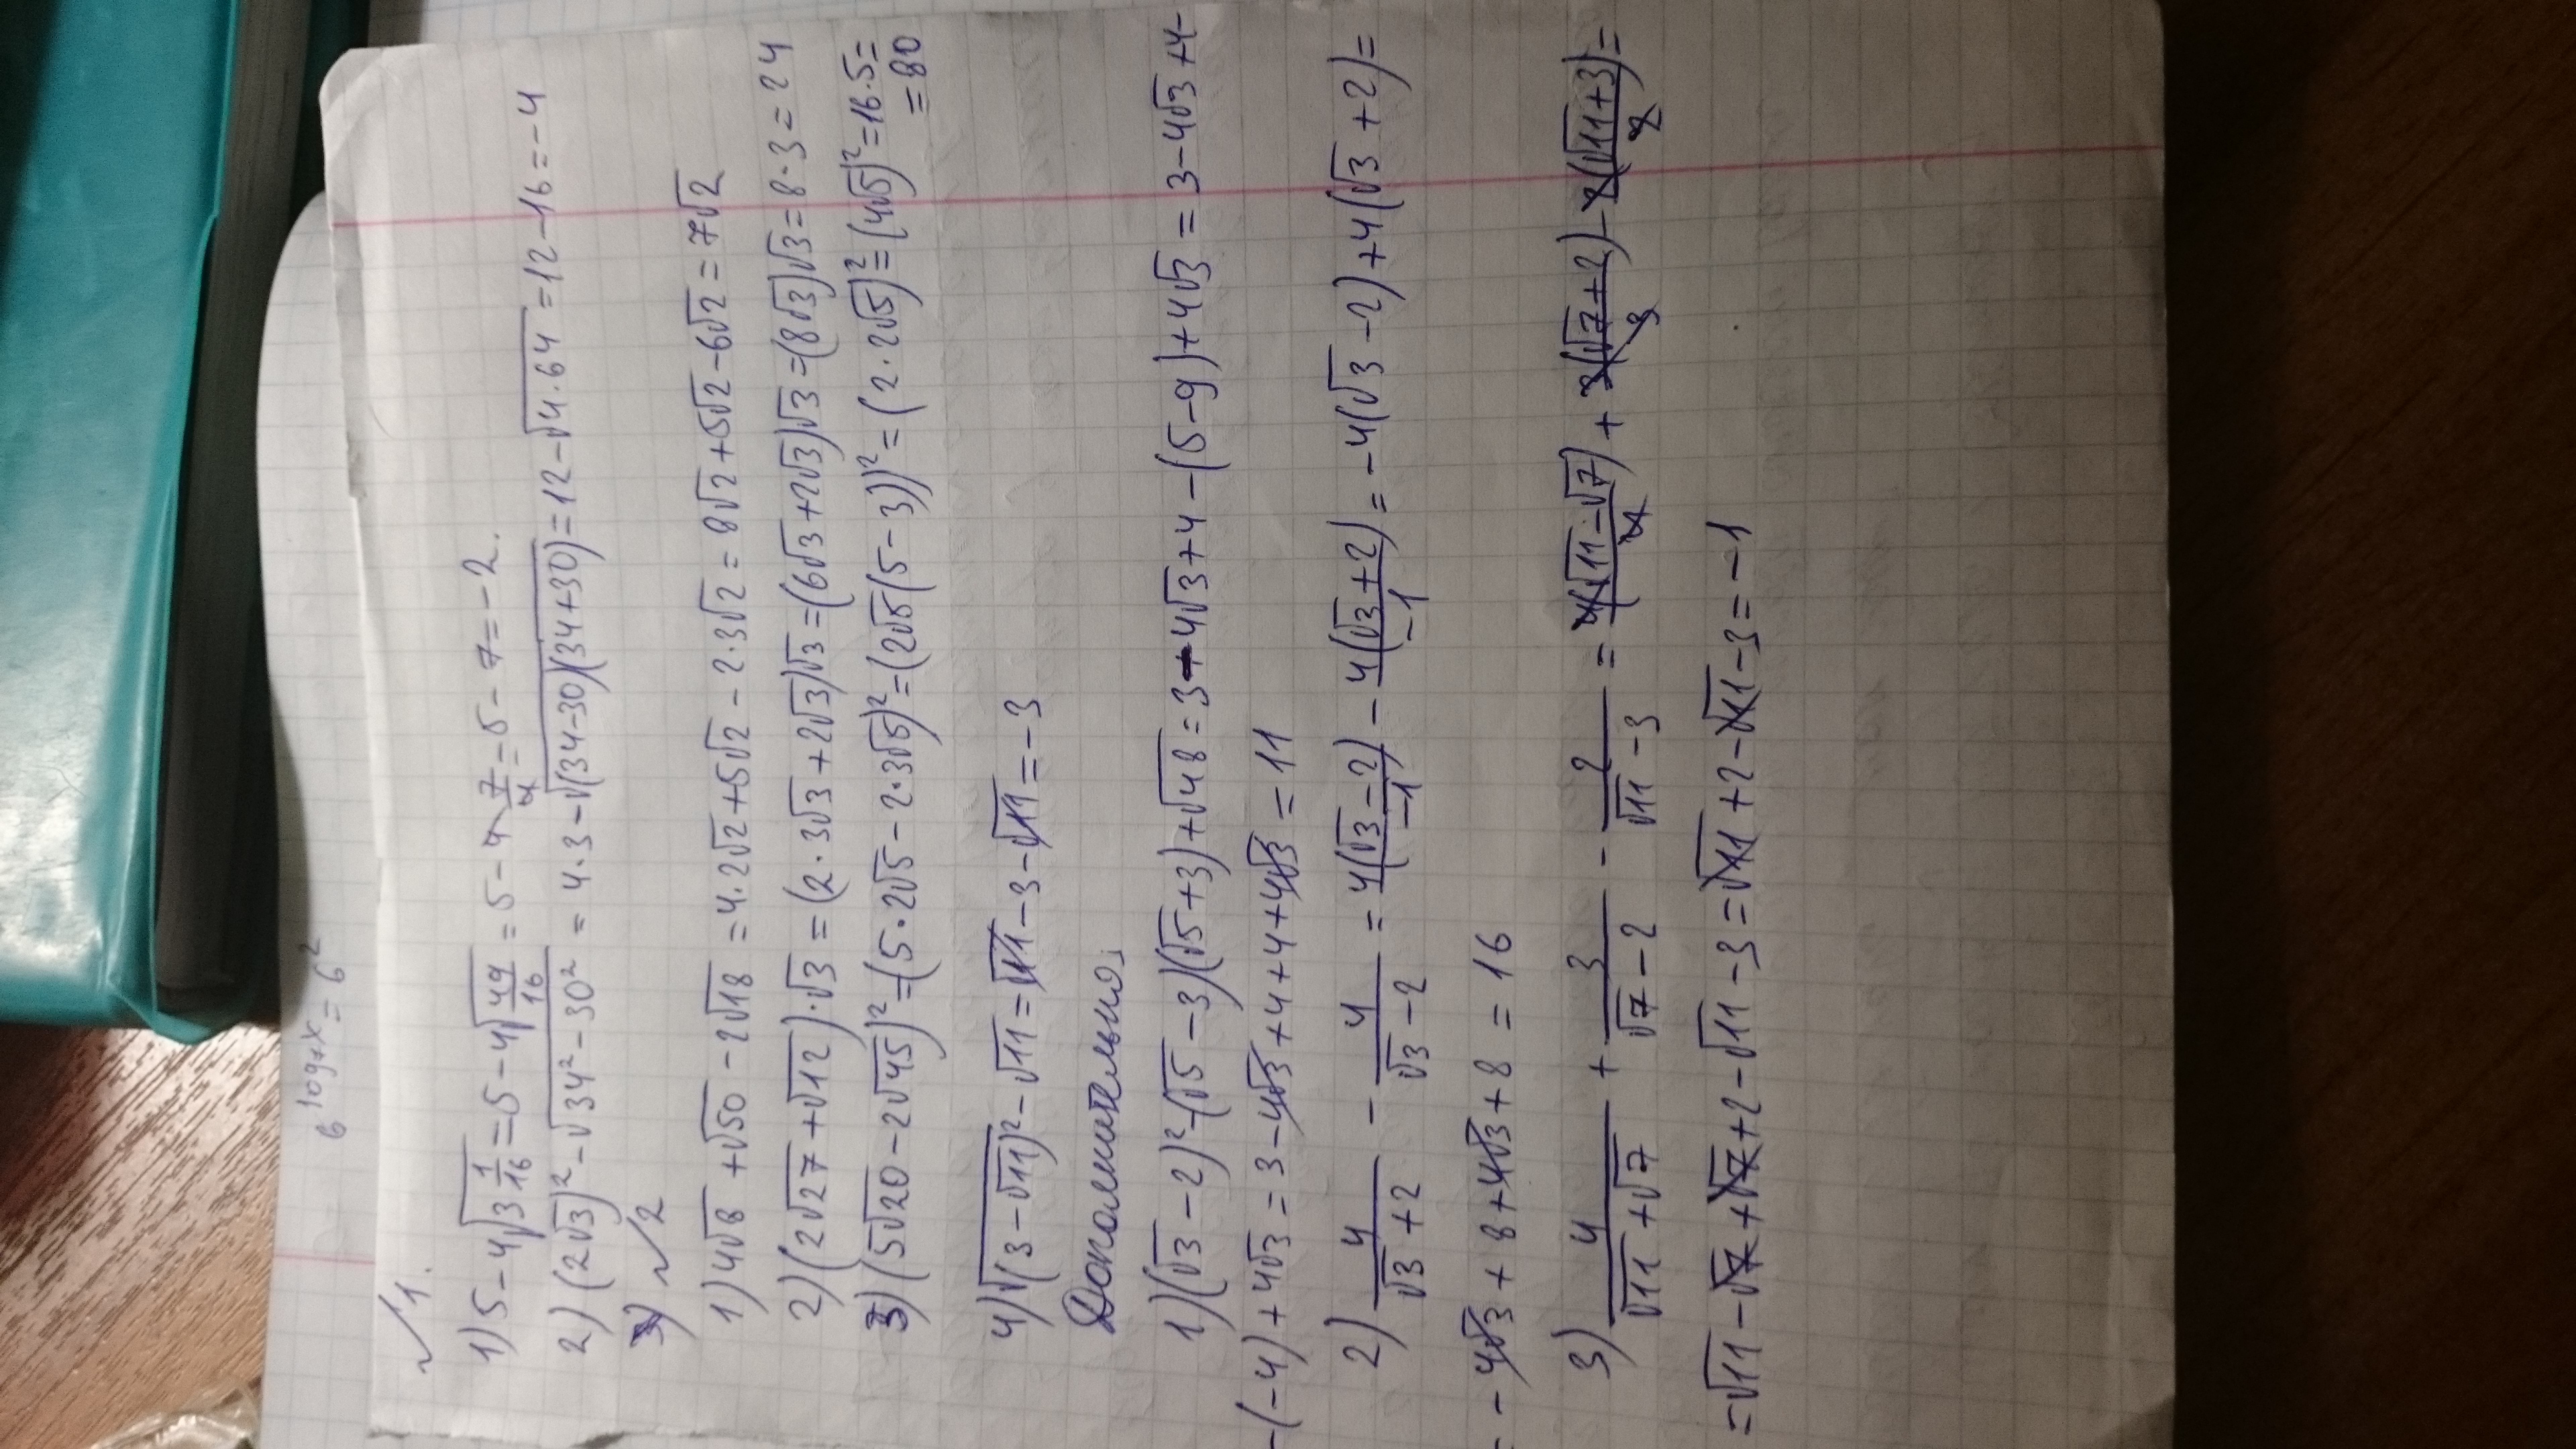 6^(log₇x) = 6²
√1.
1) 5 - 4√(3 1/16) = 5 - 4√(49/16) = 5 - 4 · 7/4 = 5 - 7 = -2.
2) (2√3)² - √(34² - 30²) = 4·3 - √((34-30)(34+30)) = 12 - √(4·64) = 12 - 16 = -4
3)
√2
1) 4√8 + √50 - 2√18 = 4·2√2 + 5√2 - 2·3√2 = 8√2 + 5√2 - 6√2 = 7√2
2) (2√27 + √12)·√3 = (2·3√3 + 2√3)√3 = (6√3 + 2√3)√3 = (8√3)√3 = 8·3 = 24
3) (5√20 - 2√45)² = (5·2√5 - 2·3√5)² = (2√5(5-3))² = (2·2√5)² = (4√5)² = 16·5 =
= 80
4) √((3-√11)²) - √11 = √11 - 3 - √11 = -3
Дополнительно:
1) (√3 - 2)² - (√5 - 3)(√5 + 3) + √48 = 3 - 4√3 + 4 - (5 - 9) + 4√3 = 3 - 4√3 + 4 -
- (-4) + 4√3 = 3 - 4√3 + 4 + 4 + 4√3 = 11
2) 4/(√3+2) - 4/(√3-2) = 4(√3-2)/-1 - 4(√3+2)/-1 = -4(√3-2) + 4(√3+2) =
= -4√3 + 8 + 4√3 + 8 = 16
3) 4/(√11+√7) + 3/(√7-2) - 2/(√11-3) = 4(√11-√7)/4 + 3(√7+2)/3 - 2(√11+3)/2 =
= √11 - √7 + √7 + 2 - √11 - 3 = √11 + 2 - √11 - 3 = -1